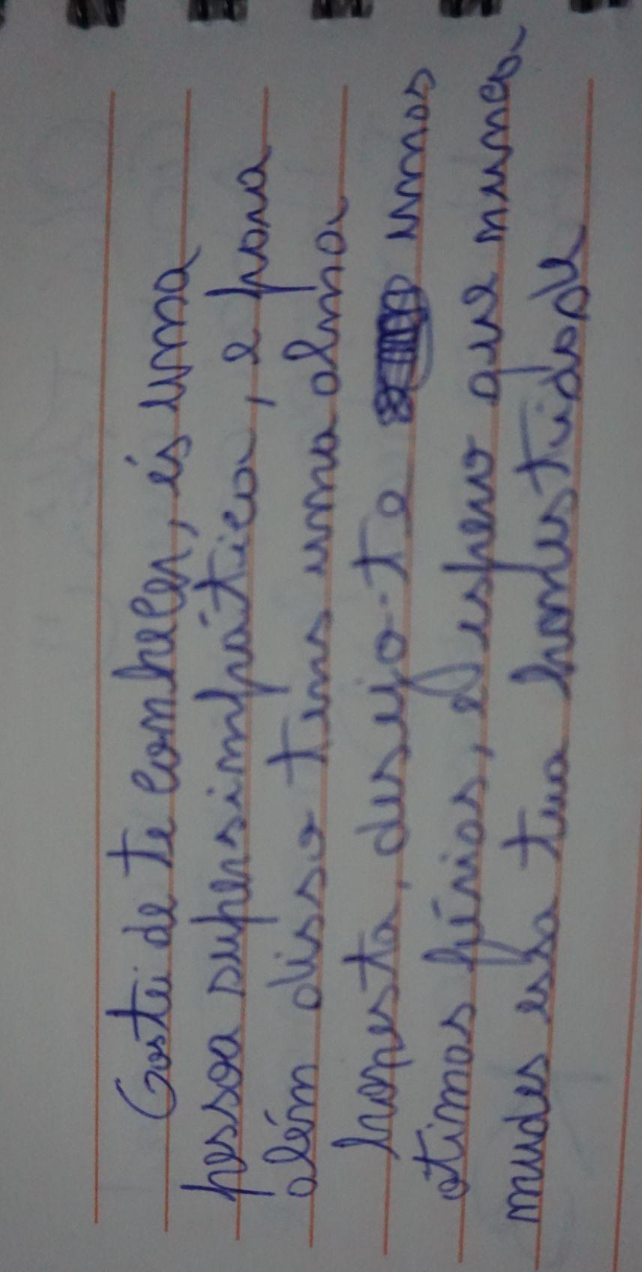 Gostei de te conhecer, és uma
pessoa supersimpática, e para
além disso tens uma alma
honesta, desejo-te umas
otimas férias, e espero que nunca
mudes essa tua honestidade